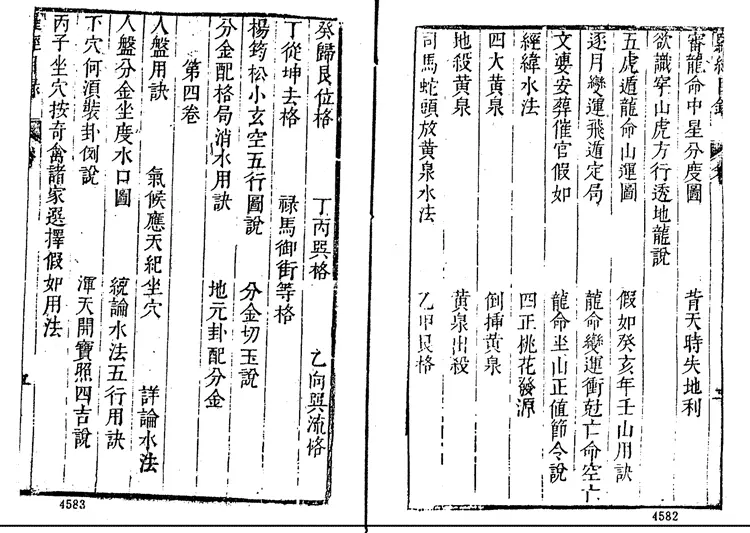 審龍命中星分度圖 背天時失地利
欲識穿山虎方行透地龍說
五虎遁龍命山運圖 假如癸亥年壬山用訣
逐月變運飛遁定局 龍命變運衝尅亡命空亡
文婆安葬催官假如 龍命坐山正值節令說
經緯水法 四正桃花發源
四大黃泉 倒揷黃泉
地殺黃泉 黃泉出殺
司馬蛇頭放黃泉水法 乙甲艮格
4582
癸歸艮位格 丁丙巽格 乙向巽流格
丁從坤去格 祿馬御街等格
楊筠松小玄空五行圖說 分金切玉說
分金配格局消水用訣 地元卦配分金
第四卷
人盤用訣 氣候應天紀坐穴 詳論水法
人盤分金坐度水口圖 統論水法五行用訣
下穴何湏裝卦例說 渾天開寶照四吉說
丙子坐穴按奇禽諸家選擇假如用法
4583